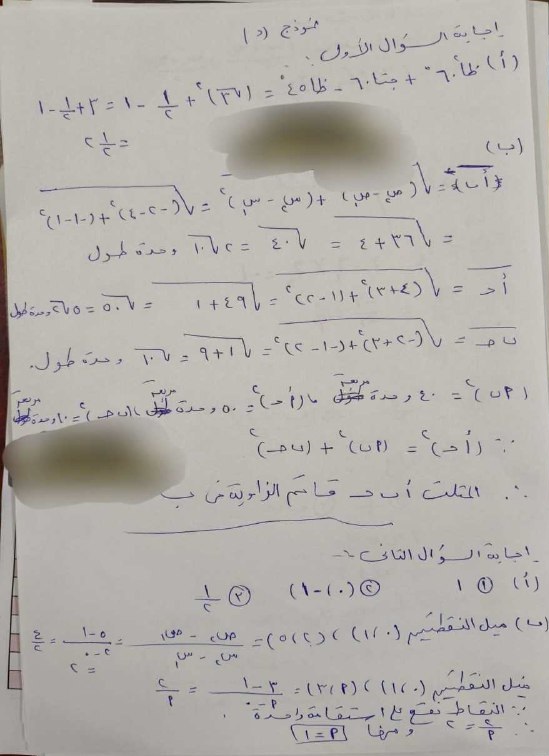 نموذج (د)
إجابة السؤال الأول :
(أ) ظا²٦٠° + جتا٦٠ - ظا٤٥° = (√٣)² + ١/٢ - ١ = ٣ + ١/٢ - ١
= ٢ ١/٢
(ب)
أب = √(س٢ - س١)² + (ص٢ - ص١)² = √(-٢-٤)² + (-١-١)²
= √٣٦+٤ = √٤٠ = ٢√١٠ وحدة طول
أحـ = √(٤+٣)² + (١-٢)² = √٤٩+١ = √٥٠ = ٥√٢ وحدة طول
ب حـ = √(-٢+٣)² + (-١-٢)² = √١+٩ = √١٠ وحدة طول.
(أب)² = ٤٠ وحدة مربعة ، (أحـ)² = ٥٠ وحدة مربعة ، (ب حـ)² = ١٠ وحدة مربعة
∵ (أحـ)² = (أب)² + (ب حـ)²
∴ المثلث أ ب حـ قائم الزاوية فى ب
إجابة السؤال الثانى :-
(أ) ① ١ ② (٠، -١) ③ ١/٢
(ب) ميل النقطتين (٠،١)، (٢،٥) = ص٢ - ص١ / س٢ - س١ = ٥-١ / ٢-٠ = ٤/٢
= ٢
ميل النقطتين (٠،١)، (أ،٣) = ٣-١ / أ-٠ = ٢/أ
∵ النقاط تقع على استقامة واحدة .
∴ ٢/أ = ٢ ومنها [أ = ١]